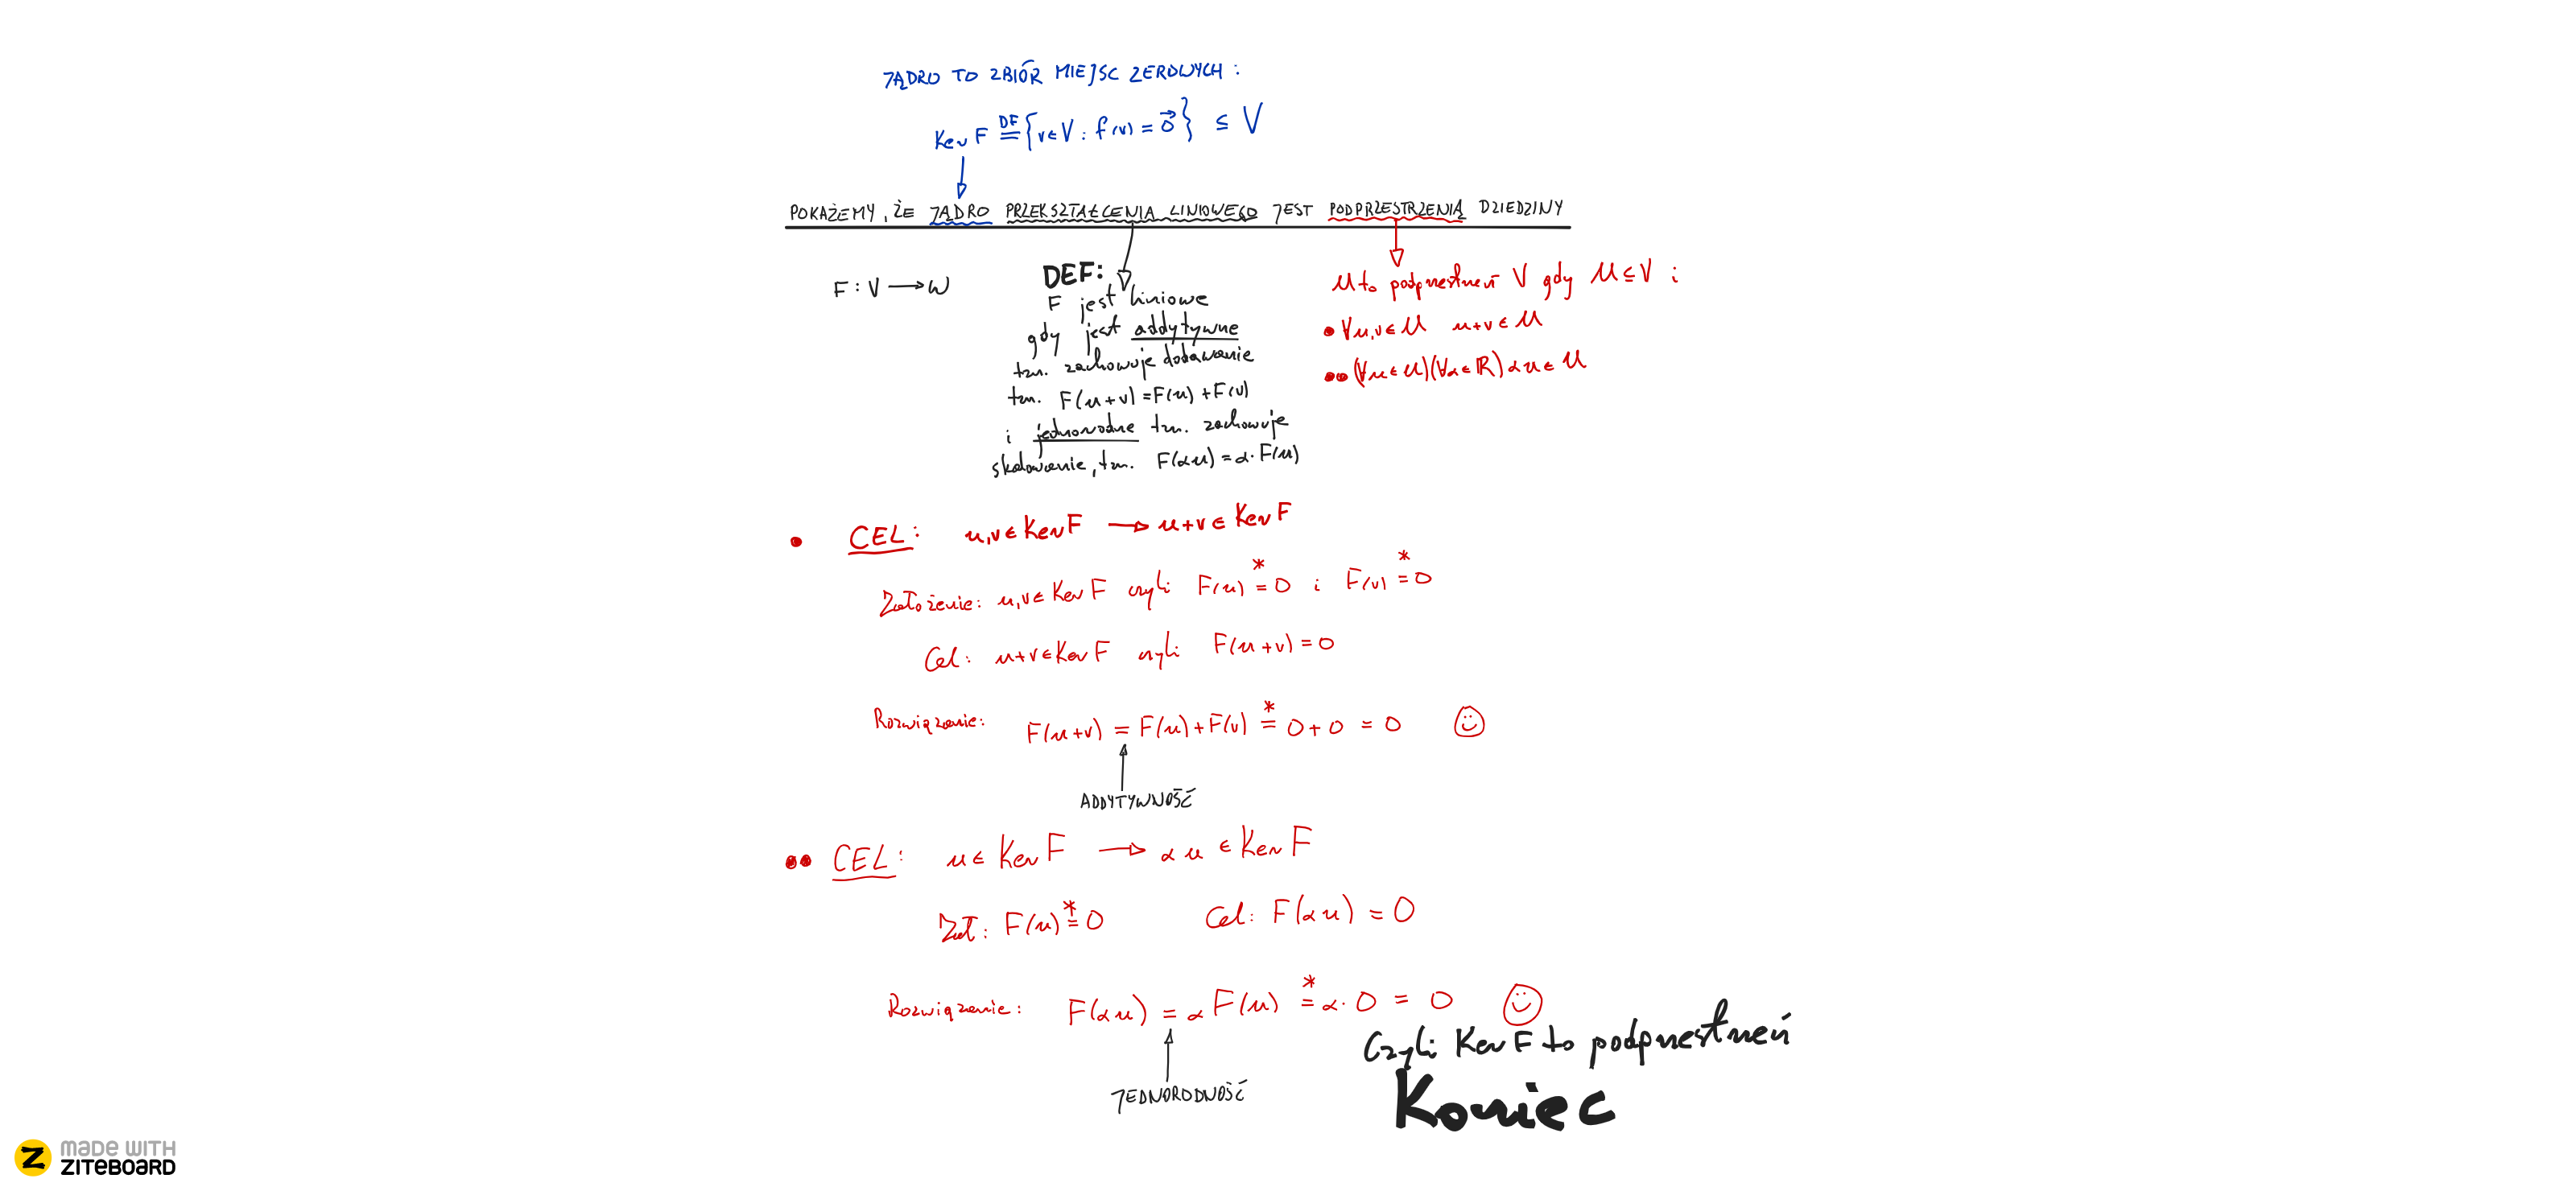 JĄDRO TO ZBIÓR MIEJSC ZEROWYCH :
Ker F DF= {v∈V : f(v) = 0⃗} ⊆ V
POKAŻEMY, ŻE JĄDRO PRZEKSZTAŁCENIA LINIOWEGO JEST PODPRZESTRZENIĄ DZIEDZINY
F : V → W
DEF:
F jest liniowe
gdy jest addytywne
tzn. zachowuje dodawanie
tzn. F(u+v) = F(u) + F(v)
i jednorodne tzn. zachowuje
skalowanie, tzn. F(αu) = α·F(u)
U to podprzestrzeń V gdy U⊆V i
• ∀u,v∈U u+v∈U
•• (∀u∈U)(∀α∈ℝ) αu∈U
• CEL: u,v∈Ker F → u+v∈Ker F
Założenie: u,v∈Ker F czyli F(u) *= 0 i F(v) *= 0
Cel: u+v∈Ker F czyli F(u+v) = 0
Rozwiązanie: F(u+v) = F(u)+F(v) *= 0+0 = 0
ADDYTYWNOŚĆ
•• CEL: u∈Ker F → αu∈Ker F
Zał: F(u) *= 0 Cel: F(αu) = 0
Rozwiązanie: F(αu) = αF(u) *= α·0 = 0
JEDNORODNOŚĆ
Czyli Ker F to podprzestrzeń
Koniec
Z MADE WITH
ZITEBOARD